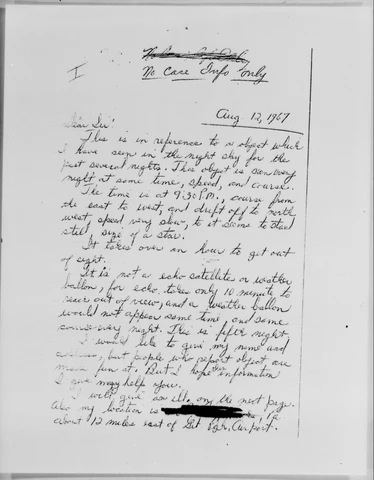 I
No Case Info Only
Aug 12, 1967
Dear Sir:
This is in reference to a object which
I have seen in the night sky for the
past several nights. This object is seen every
night at same time, speed, and course.
The time is at 9:30 P.M., course from
the east to west, and drift off to north
west, speed very slow, to it seems to stand
still, size of a star.
It takes over an hour to get out
of sight.
It is not a echo satellite or weather
ballon, for echo takes only 10 minute to
move out of view, and a weather ballon
would not appear same time, and same
course every night. This is fifth night.
I would like to give my name and
address, but people who report object are
made fun of. But I hope this information
I give may help you.
I will give an ill. on the next page.
Also my location is
about 12 miles east of Gtr. Pgh. Airport.